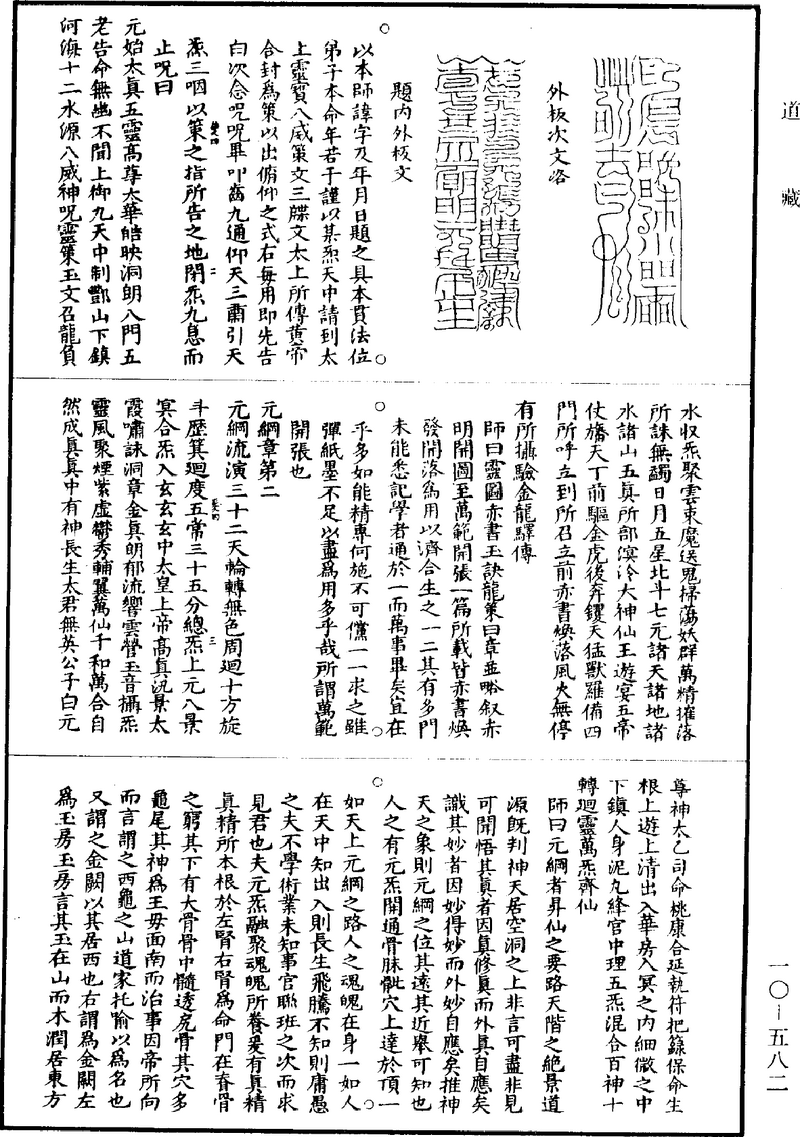 道藏
外板次文咨
題内外板文
以本師諱字及年月日題之具本貫法位
弟子本命年若干謹以某炁天中請到太
上靈寶八威策文三牒文太上所傳黄帝
合封爲策以出俯仰之式右每用即先告
白次念呪呪畢叩齒九通仰天三肅引天
炁三咽以策之指所告之地閉炁九息而
止呪曰
元始太真五靈高尊太華皓映洞朗八門五
老告命無幽不聞上御九天中制酆山下鎮
河海十二水源八威神呪靈策玉文召龍負
水收炁聚雲束魔送鬼掃蕩妖群萬精摧落
所誅無蠲日月五星北斗七元諸天諸地諸
水諸山五真所部溟泠大神仙王遊宴五帝
仗旛天丁前驅金虎後奔钁天猛獸羅備四
門所呼立到所召立前赤書煥落風火無停
有所攝驗金龍驛傳
師曰靈圖赤書玉訣龍策曰章並略叙赤
明開圖至萬範開張一篇所載皆赤書煥
發開落爲用以濟合生之一二其有多門
未能悉記學者通於一而萬事畢矣豈在
乎多如能精專何施不可儻一一求之雖
彈紙墨不足以盡爲用多乎哉所謂萬範
開張也
元綱章第二
元綱流演三十二天輪轉無色周迴十方旋
斗歷箕迴度五常三十五分總炁上元八景
冥合炁入玄玄玄中太皇上帝高真汎景太
霞嘯詠洞章金真朗郁流響雲營玉音攝炁
靈風聚煙紫虛欝秀輔翼萬仙千和萬合自
然成真真中有神長生太君無英公子白元
尊神太乙司命桃康合延執符把籙保命生
根上遊上清出入華房八冥之内細微之中
下鎮人身泥丸絳宫中理五炁混合百神十
轉迴靈萬炁齊仙
師曰元綱者昇仙之要路天階之絶景道
源既判神天居空洞之上非言可盡非見
可聞悟其真者因真修真而外真自應矣
識其妙者因妙得妙而外妙自應矣推神
天之象則元綱之位其遠其近舉可知也
人之有元炁開通骨脉骴穴上達於頂一
如天上元綱之路人之魂魄在身一如人
在天中知出入則長生飛騰不知則庸愚
之夫不學術業未知事官聯班之次而求
見君也夫元炁融聚魂魄所養爰有真精
真精所本根於左腎右腎爲命門在脊骨
之窮其下有大骨骨中髓透虎骨其穴多
龜尾其神爲王母面南而治事因帝所向
而言謂之西龜之山道家托喻以爲名也
又謂之金闕以其居西也右謂爲金闕左
爲玉房玉房言其玉在山而木潤居東方
一〇-五八二